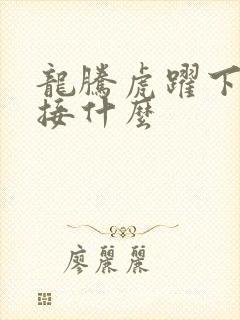 龍騰虎躍下
接什麼
廖麗麗